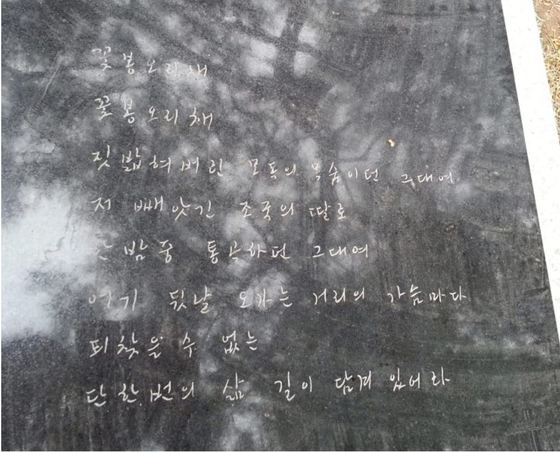 꽃봉오리채
꽃봉오리채
짓밟혀버린 모독의 목숨이던 그대여
저 빼앗긴 조국의 딸로
밤중 통곡하던 그대여
여기 뒷날 오가는 거리의 가슴마다
되찾을 수 없는
단 한번의 삶 길이 담겨 있어라